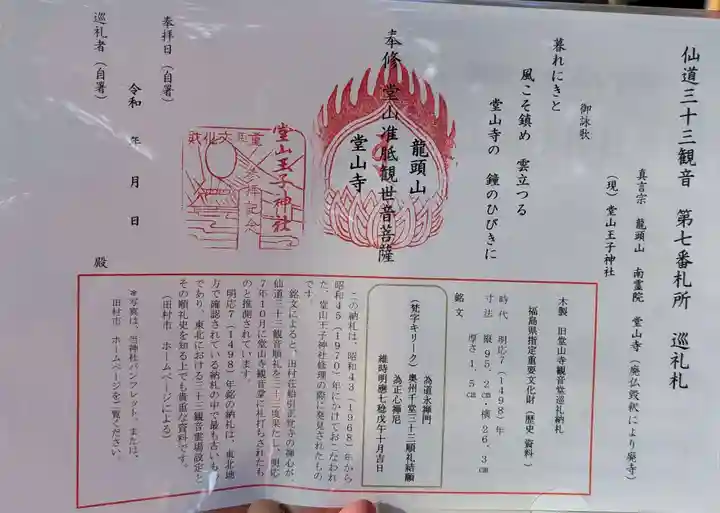 仙道三十三観音　第七番札所　巡礼札
真言宗　龍頭山　南霊院　堂山寺（廃仏毀釈により廃寺）
（現）堂山王子神社
御詠歌
暮れにきと
風こそ鎮め　雲立つる
堂山寺の　鐘のひびきに
龍頭山
奉修　堂山准胝観世音菩薩
堂山寺
重要文化財
堂山王子神社
参拝記念
奉拝日（自署）
令和　年　月　日
巡礼者（自署）
殿
木製　旧堂山寺観音堂巡礼納札
福島県指定重要文化財（歴史資料）
時代　明応7（1498）年
寸法　縦95.2㎝・横26.3㎝
厚さ1.5㎝
銘文
為道永禅門
（梵字キリーク）奥州千堂三十三順礼結願
為正心禅尼
維時明應七稔戊午十月吉日
この納札は、昭和43（1968）年から
昭和45（1970）年にかけておこなわれ
た、堂山王子神社修理の際に発見されたもの
です。
銘文によると、田村荘船引正覚寺の禅心が、
仙道三十三観音順礼を三十三度果たし、明応
7年10月に堂山寺観音堂に札打ちされたも
のと推測されています。
明応7（1498）年銘の納札は、東北地
方で確認されている納札の中で最も古いも
のであり、東北における三十三観音霊場設定と
その順礼史を知る上でも貴重な資料です。
（田村市　ホームページによる）
＊写真は、当神社パンフレット、または、
田村市　ホームページをご覧ください。